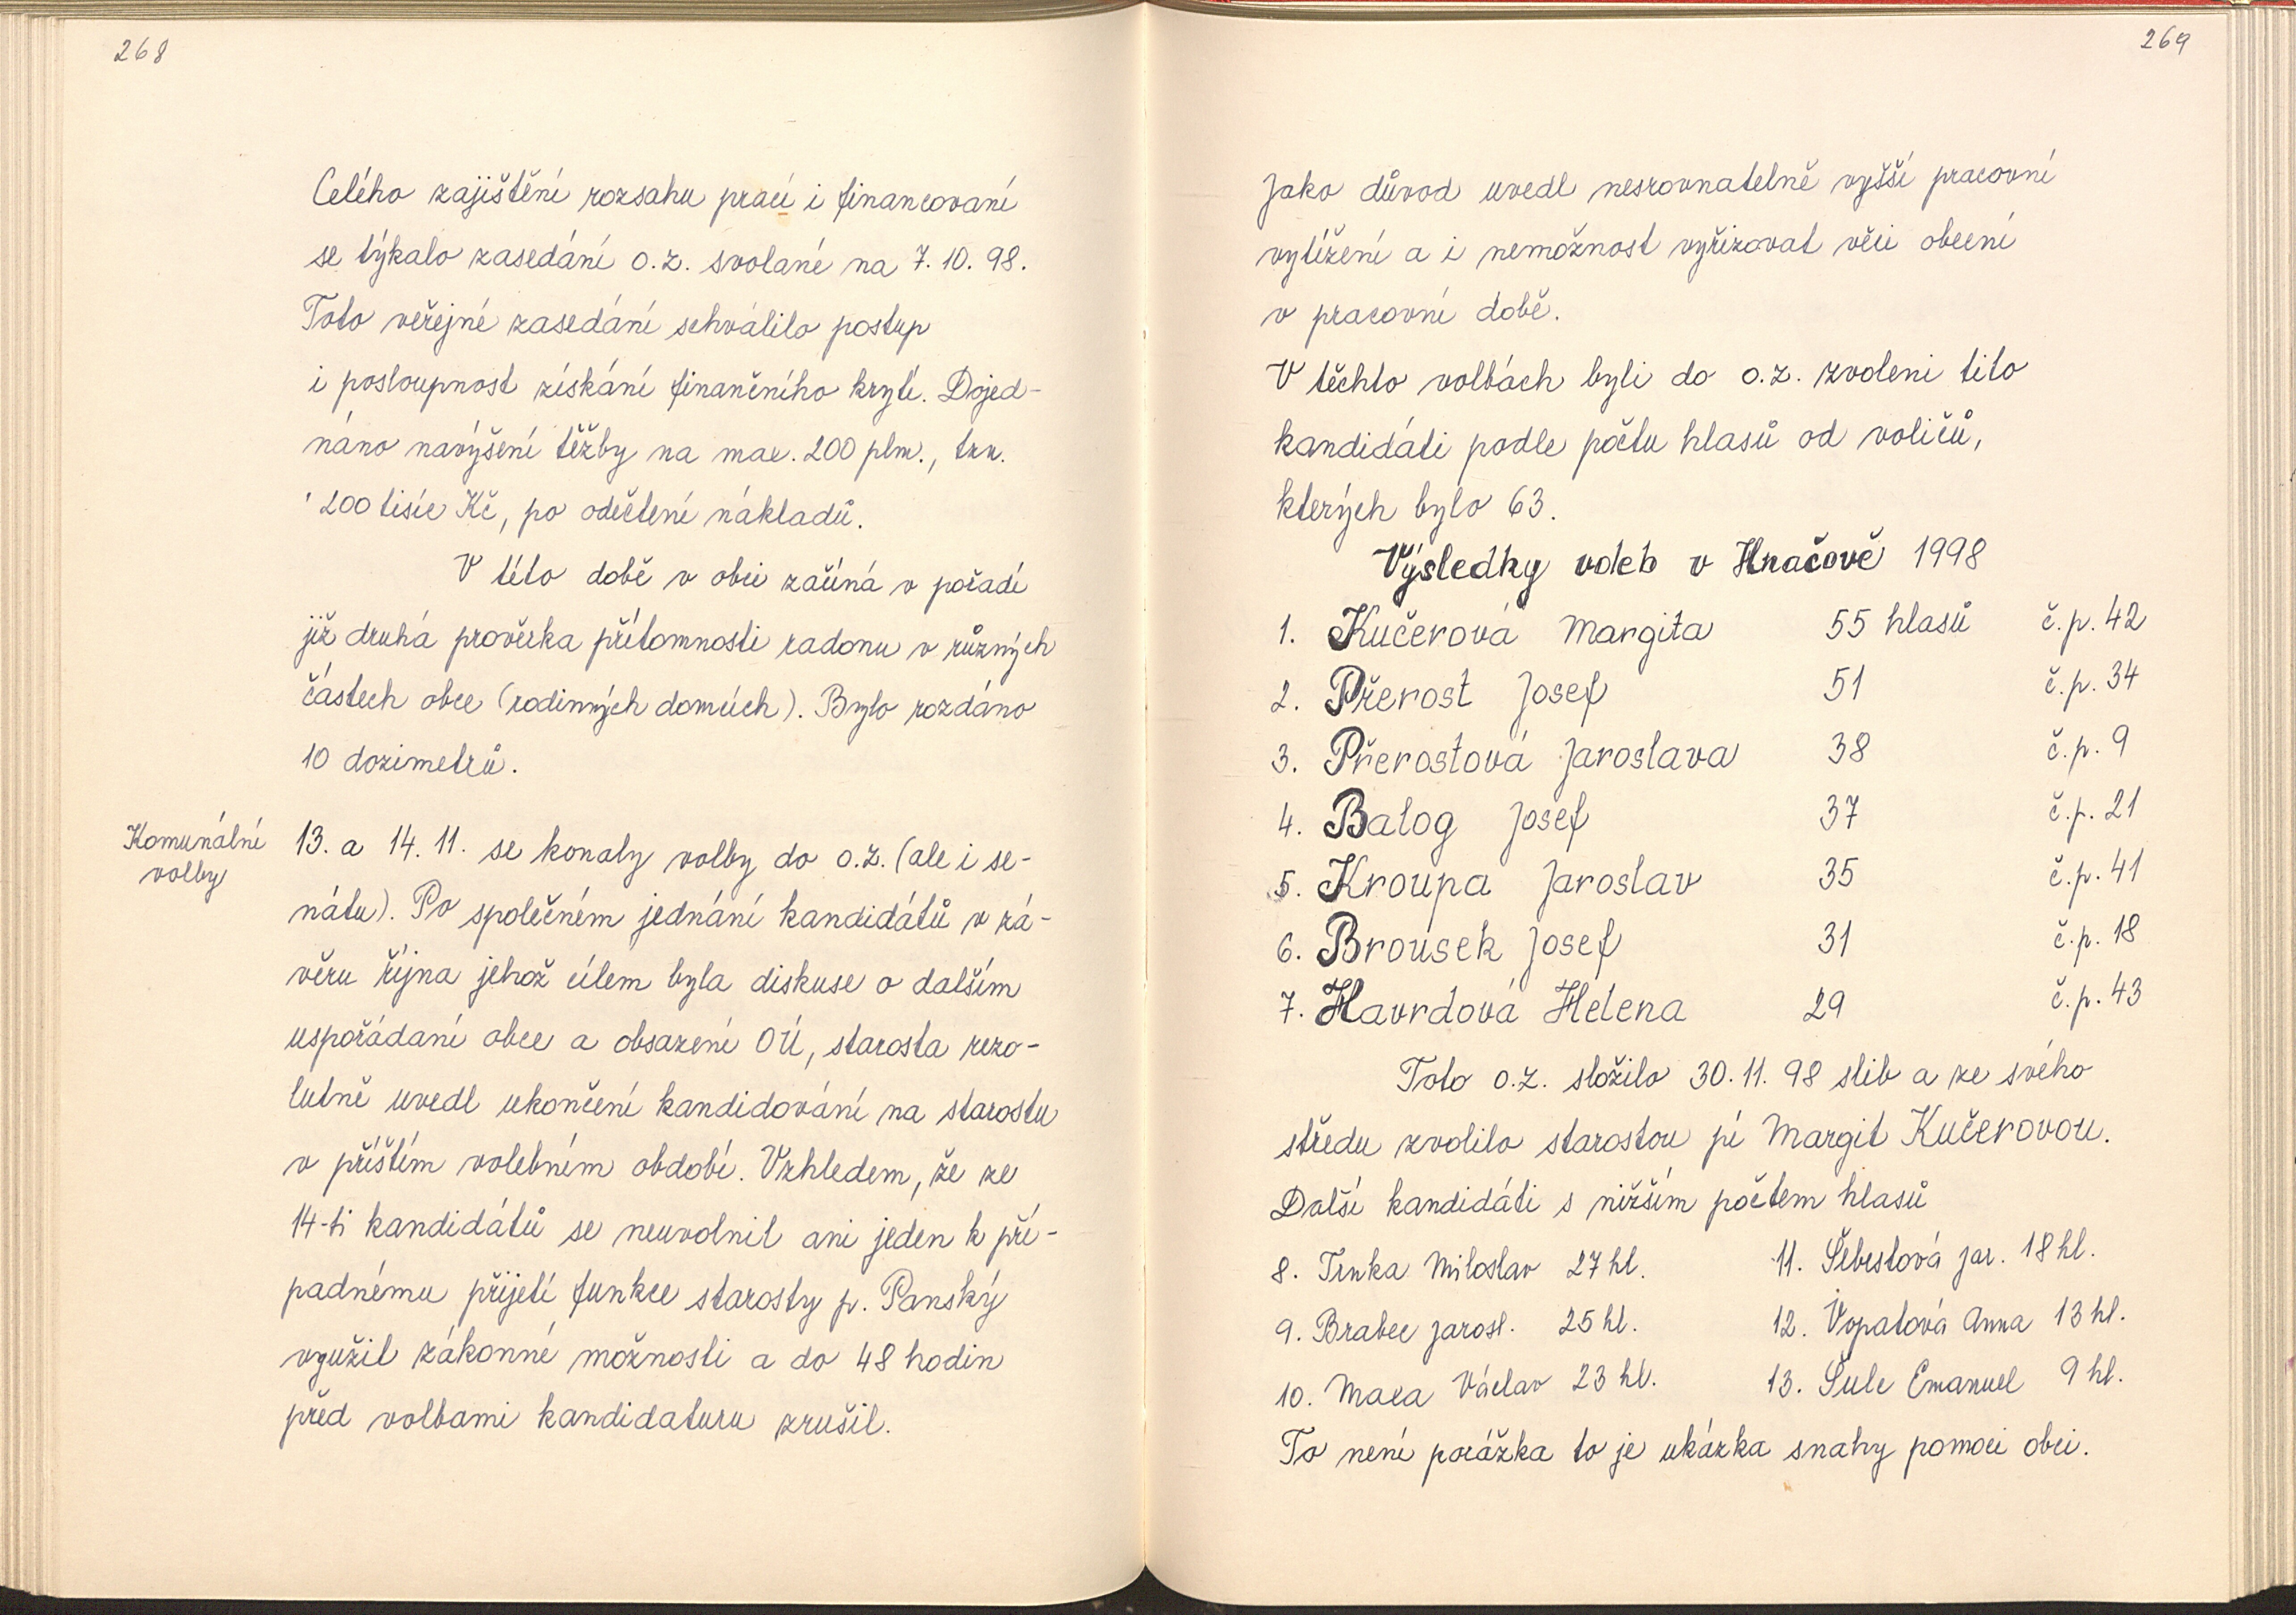 268
Celého zajištění rozsahu prací i financovaní
se týkalo zasedání o.z. svolané na 7.10.98.
Toto veřejné zasedání schválilo postup
i posloupnost získání finančního krytí. Dojed-
náno navýšení těžby na max. 200 plm., tzn.
200 tisíc Kč, po odečtení nákladů.
V této době v obci začíná v pořadí
již druhá prověrka přítomnosti radonu v různých
částech obce (rodinných domúch). Bylo rozdáno
10 dozimetrů.
Komunální
volby
13. a 14. 11. se konaly volby do o.z. (ale i se-
nátu). Po společném jednání kandidátů v zá-
věru října jehož cílem byla diskuse o dalším
uspořádaní obce a obsazení OÚ, starosta rezo-
lutně uvedl ukončení kandidování na starostu
v příštím volebním období. Vzhledem, že ze
14-ti kandidátů se neuvolnil ani jeden k pří-
padnému přijetí funkce starosty p. Panský
využil zákonné možnosti a do 48 hodin
před volbami kandidaturu zrušil.
269
Jako důvod uvedl nesrovnatelně vyšší pracovní
vytížení a i nemožnost vyřizovat věci obecní
v pracovní době.
V těchto volbách byli do o.z. zvoleni tito
kandidáti podle počtu hlasů od voličů,
kterých bylo 63.
Výsledky voleb v Hnačově 1998
1. Kučerová Margita 55 hlasů č.p. 42
2. Přerost Josef 51 č.p. 34
3. Přerostová Jaroslava 38 č.p. 9
4. Balog Josef 37 č.p. 21
5. Kroupa Jaroslav 35 č.p. 41
6. Brousek Josef 31 č.p. 18
7. Havrdová Helena 29 č.p. 43
Toto o.z. složilo 30.11.98 slib a ze svého
středu zvolilo starostou pí Margit Kučerovou.
Další kandidáti s nižším počtem hlasů
8. Trnka Miloslav 27 hl. 11. Šebestová Jar. 18 hl.
9. Brabec Jarosl. 25 hl. 12. Vopatová Anna 13 hl.
10. Maca Václav 23 hl. 13. Šulc Emanuel 9 hl.
To není porážka to je ukázka snahy pomoci obci.